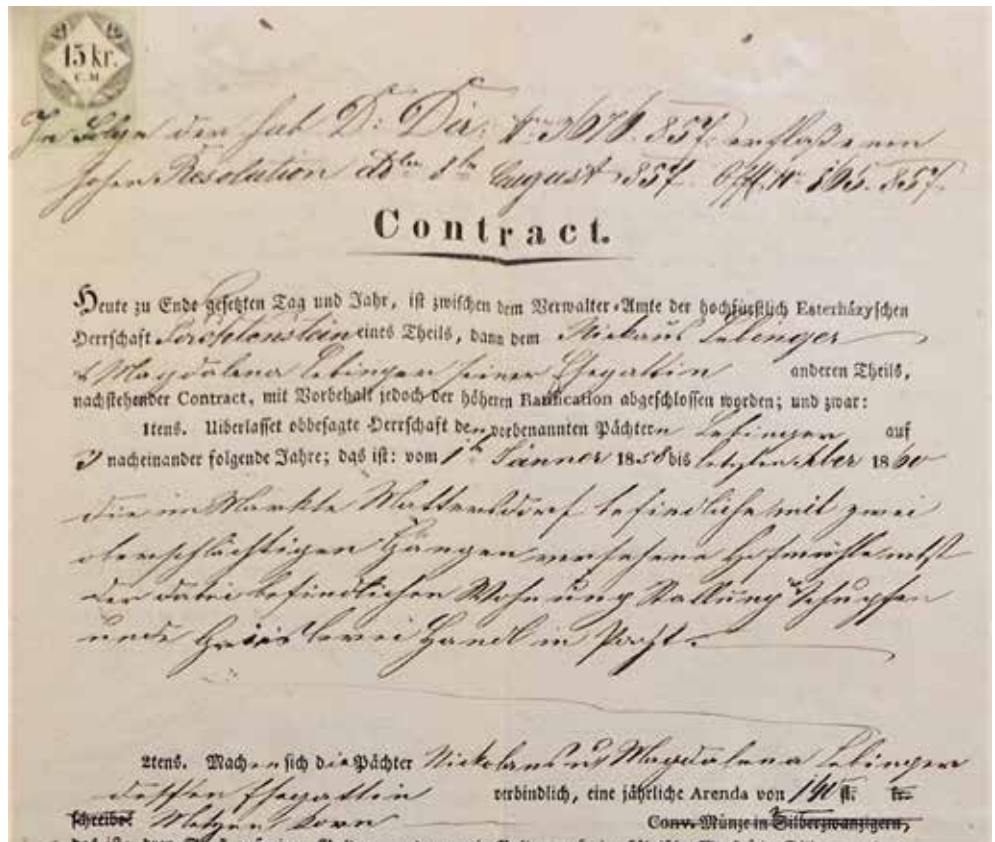 15 kr.
C. M
In Folge der hab D: Dir: N. 3676. 857. erflossenen
hohen Resolution dto 8ten August 857. Off. N. 165. 857.
Contract.
Heute zu Ende gesetzten Tag und Jahr, ist zwischen dem Verwalter-Amte der hochfürstlich Esterházyschen
Herrschaft Forchtenstein eines Theils, dann dem Nickaus Lebinger
& Magdalena Lebinger seiner Ehegattin anderen Theils,
nachstehender Contract, mit Vorbehalt jedoch der höheren Ratification abgeschlossen worden; und zwar:
1tens. Uiberlasset obbesagte Herrschaft den vorbenannten Pächtern Lebinger auf
3 nacheinander folgende Jahre; das ist: vom 1ten Jänner 1858 bis letzten xber 1860
die im Markte Mattersdorf befindliche mit zwei
oberschlächtigen Gängen versehene Hofmühle nebst
der dabei befindlichen Wohn und Stallung Schupfen
und Greislerei Handl in Pacht.
2tens. Machen sich die Pächter Nickolaus u. Magdalena Lebinger
dessen Ehegattin verbindlich, eine jährliche Arenda von 190 fl. kr.
schreibe! Metzen Korn Conv. Münze in Silberzwanzigern,